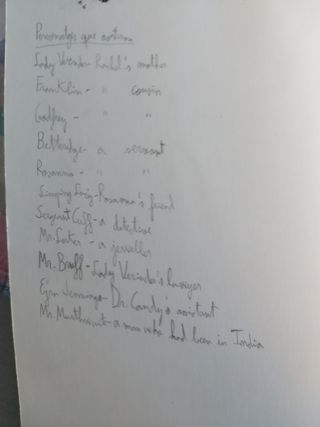 Personatges que
Lady Verinder - Rachel's mother
Franklin - " cousin
Godfrey - " "
Betteredge - a servant
Rosanna - " "
Limping Lucy - Rosanna's friend
Sergeant Cuff - a detective
Mr. Luker - a jeweller
Mr. Bruff - Lady Verinder's lawyer
Ezra Jennings - Dr. Candy's assistant
Mr. Murthwait - a man who had been in India